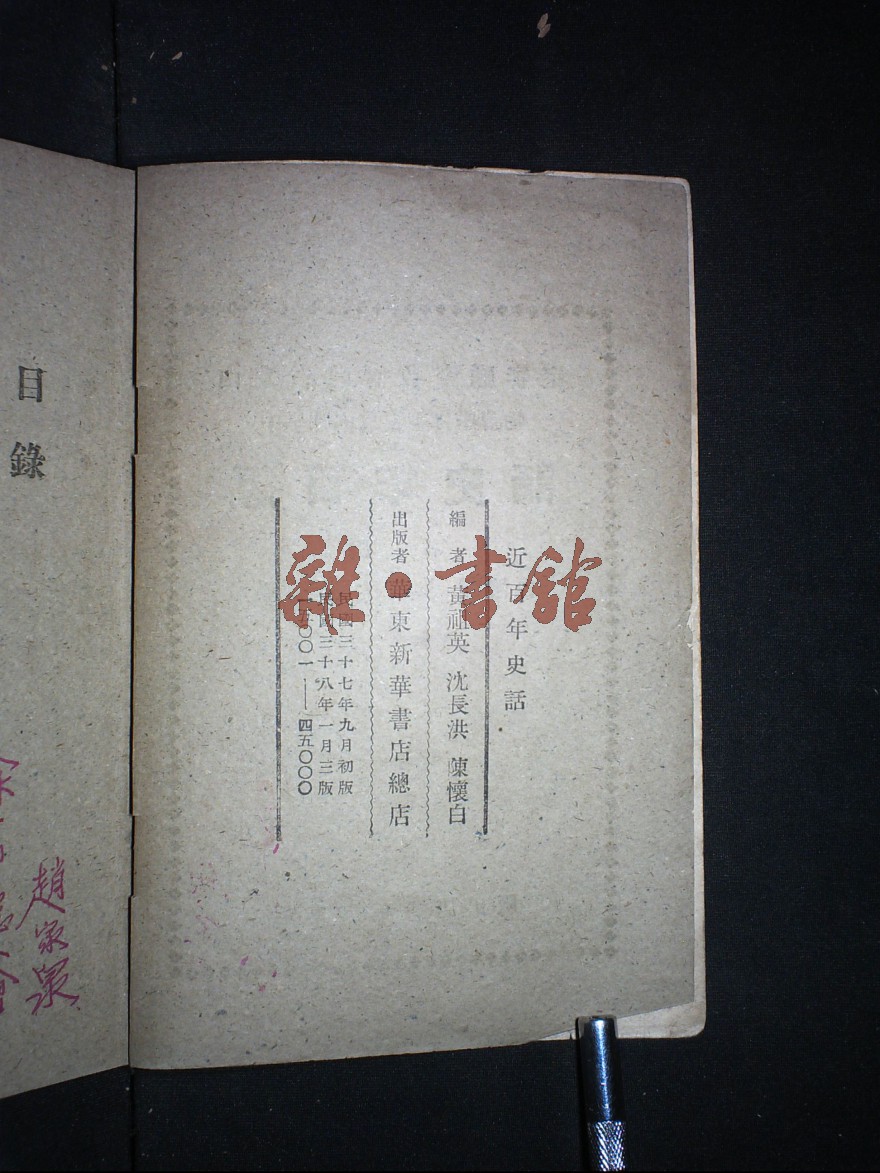 近百年史話
編者 黃祖英 沈長洪 陳懷白
出版者 華東新華書店總店
民國三十七年九月初版
民國三十八年一月三版
〇〇一——四五〇〇〇
目錄
趙家
雜·書館